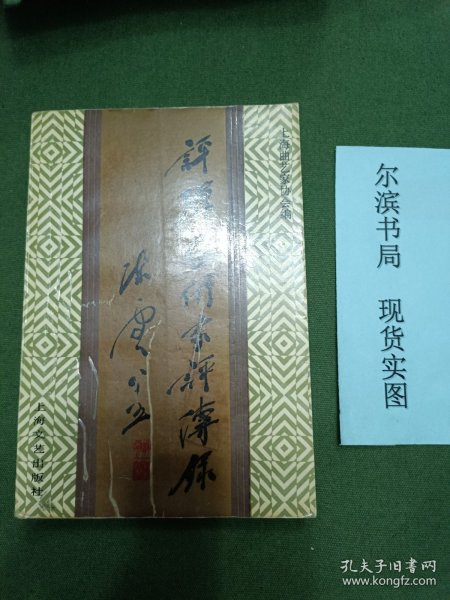 上海曲艺家协会编
評弹艺術家評傳錄
陈雲
上海文艺出版社
尔滨书局 现货实图
孔夫子旧书网
www.kongfz.com